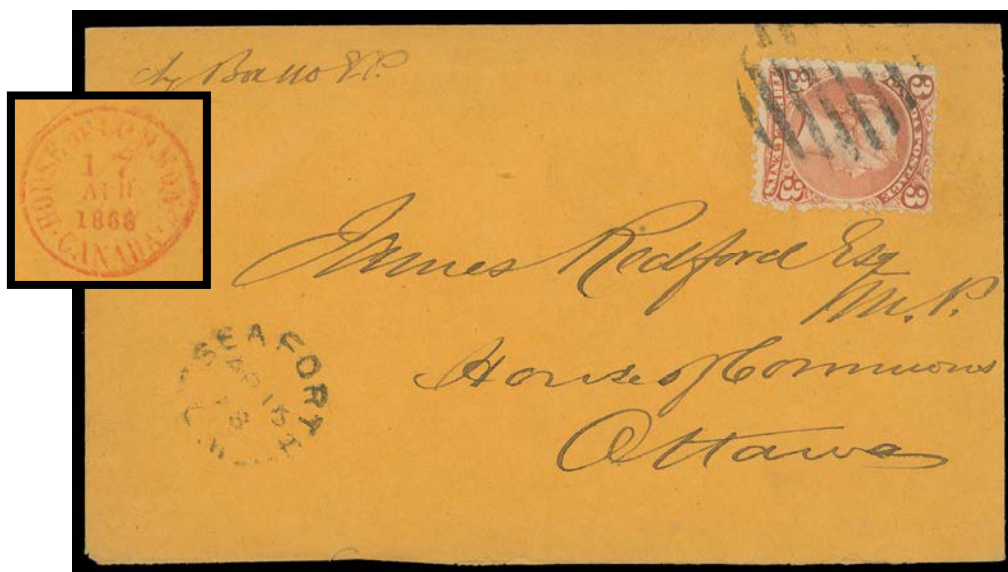 HOUSE OF COMMONS
17
AP
1868
CANADA
3 3
3 3
James Redford Esq
M.P.
House of Commons
Ottawa
SEAFORTH
AP 15